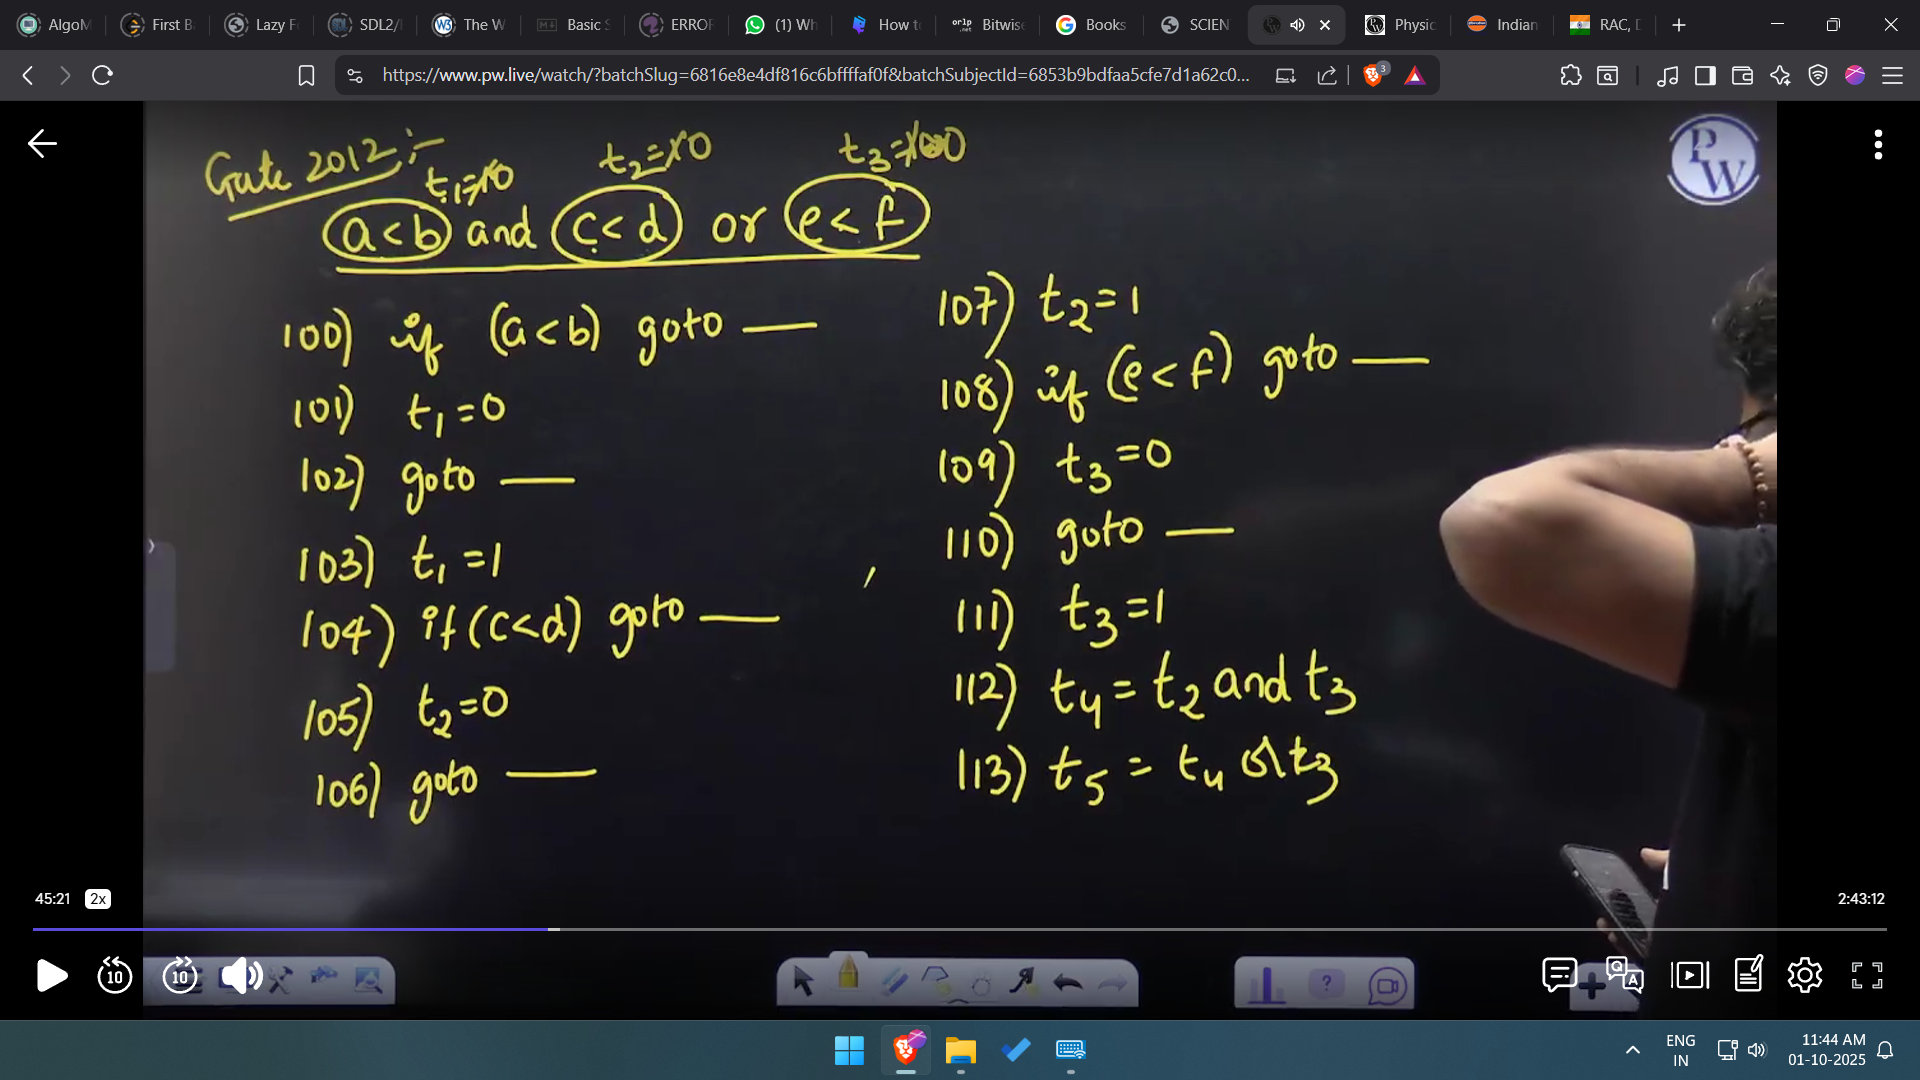 AlgoM
First B
Lazy F
SDL2/
The W
Basic S
ERROR
(1) Wh
How t
Bitwis
Books
SCIEN
Physic
Indian
RAC,
https://www.pw.live/watch/?batchSlug=6816e8e4df816c6bffffaf0f&batchSubjectId=6853b9bdfaa5cfe7d1a62c0...
3
Gate 2012:-
t1=
0
t2=
0
t3=
0
PW
a<b and c<d or e<f
100) if (a<b) goto ___
101) t1=0
102) goto ___
103) t1=1
104) if (c<d) goto ___
105) t2=0
106) goto ___
107) t2=1
108) if (e<f) goto ___
109) t3=0
110) goto ___
111) t3=1
112) t4=t2 and t3
113) t5=t4 or t3
45:21 2x
2:43:12
10
10
ENG
IN
11:44 AM
01-10-2025